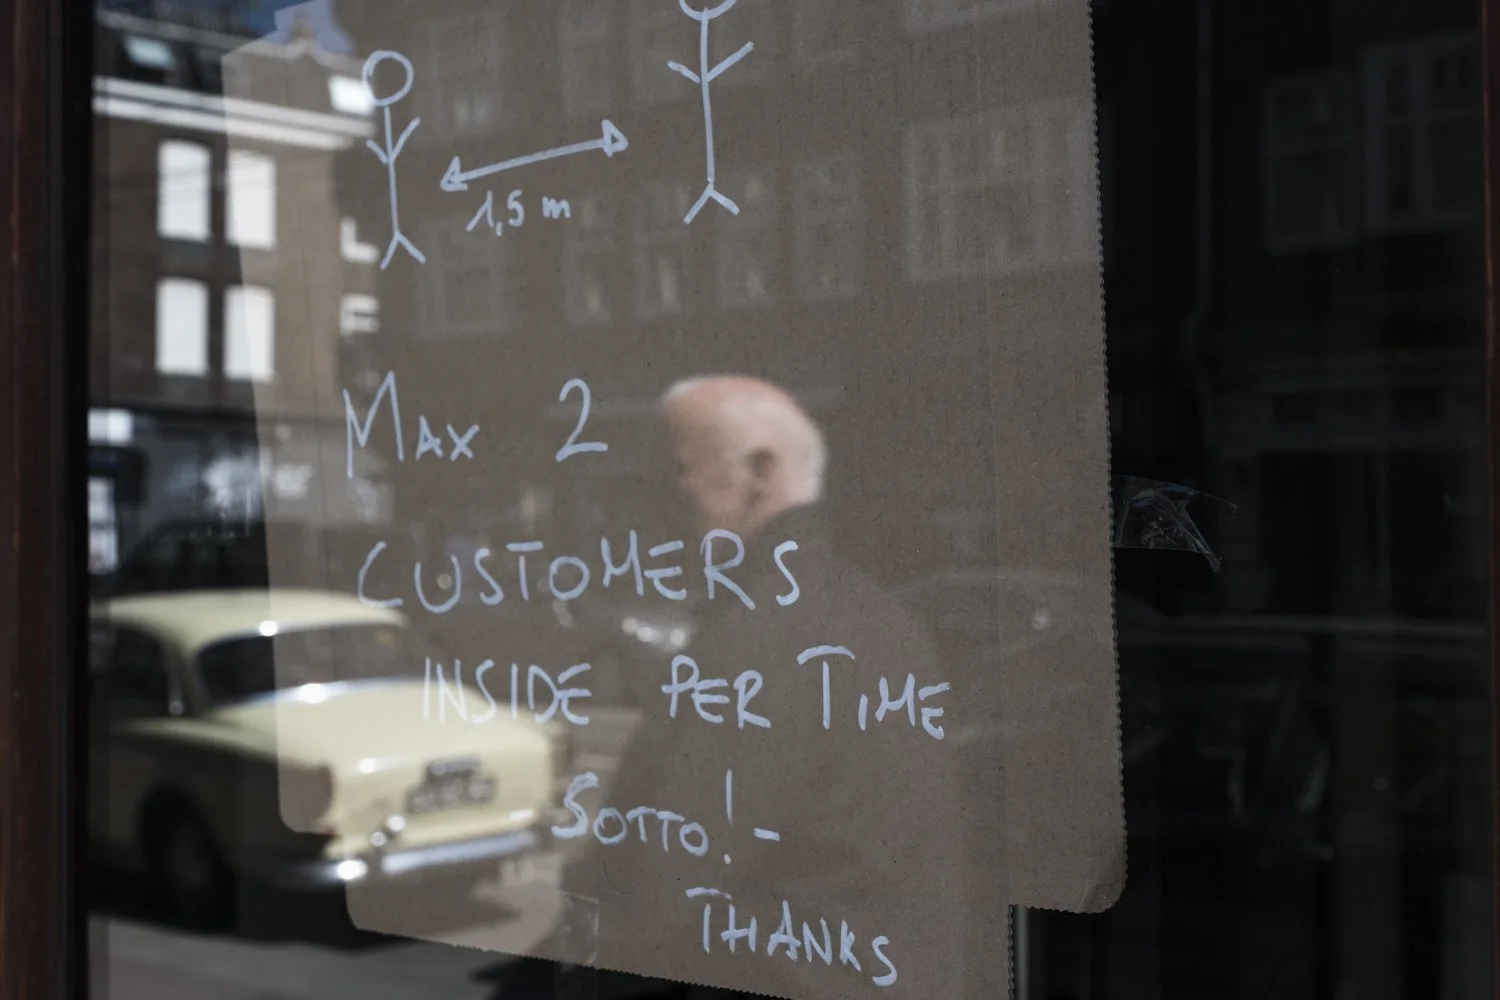 1,5 m
Max 2
CUSTOMERS
INSIDE PER TIME
SOTTO!-
THANKS